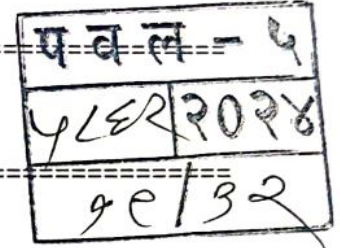 प व ल - ५
५८६२ २०२४
१९/३२